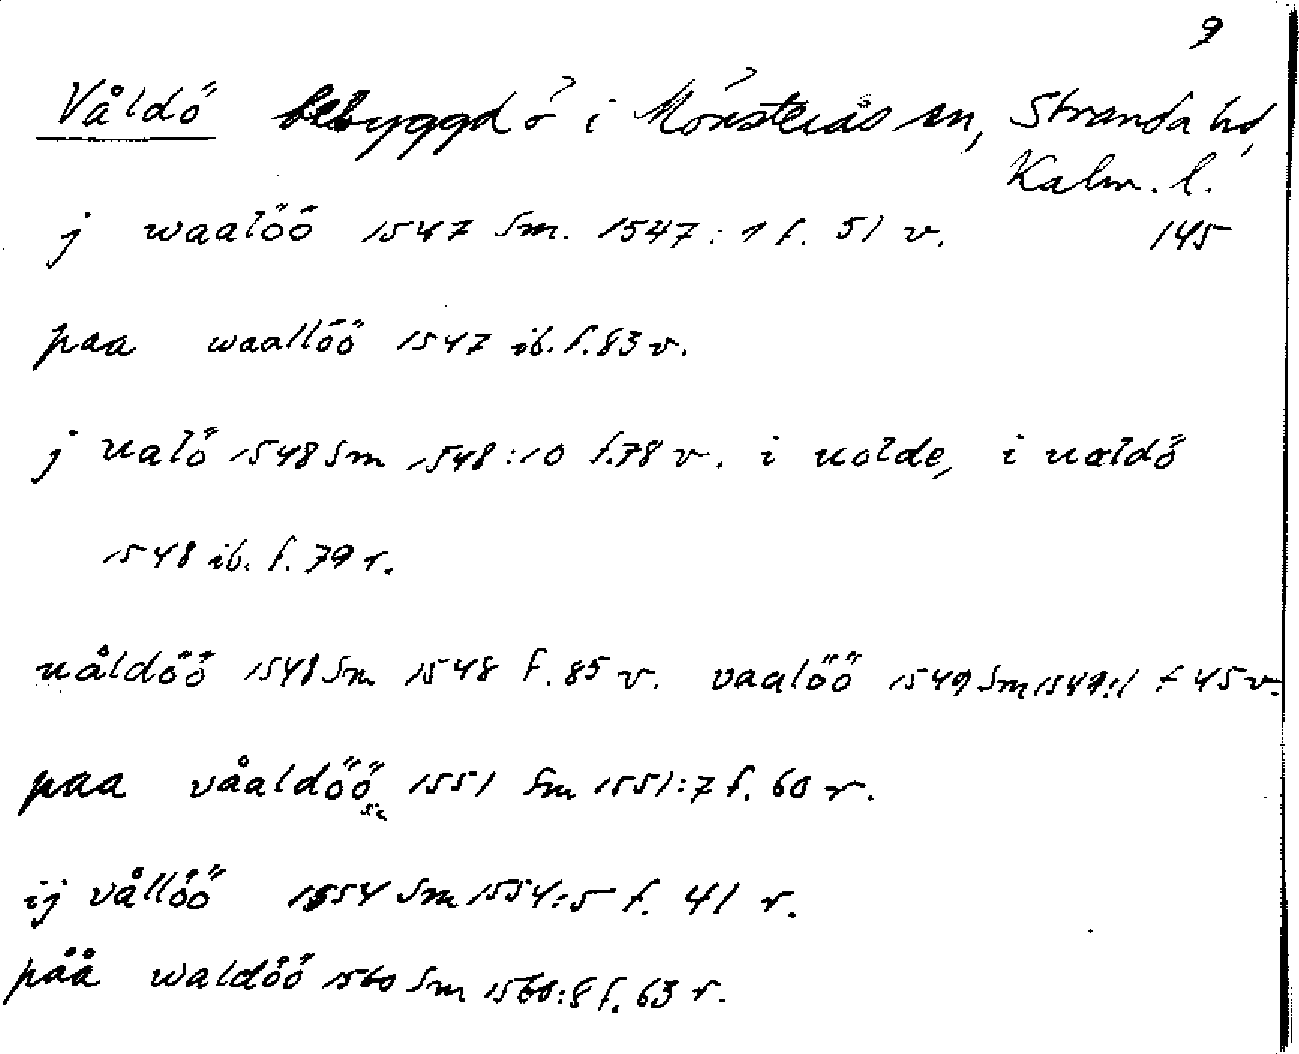 9
Våldö bebyggd ö i Mönsterås sn, Stranda hd,
Kalm. l.
j waalöö 1547 Sm. 1547:1 f. 51 v. 145
paa waallöö 1547 ib. f. 83 v.
j ualö 1548 Sm 1548:10 f. 78 v. i uolde, i ualdö
1548 ib. f. 79 r.
uåldöö 1548 Sm 1548 f. 85 v. vaalöö 1549 Sm 1549:1 f 45 v.
paa våaldöö sic 1551 Sm 1551:7 f. 60 r.
ij vållöö 1554 Sm 1554:5 f. 41 r.
påå waldöö 1560 Sm 1560:8 f. 63 r.